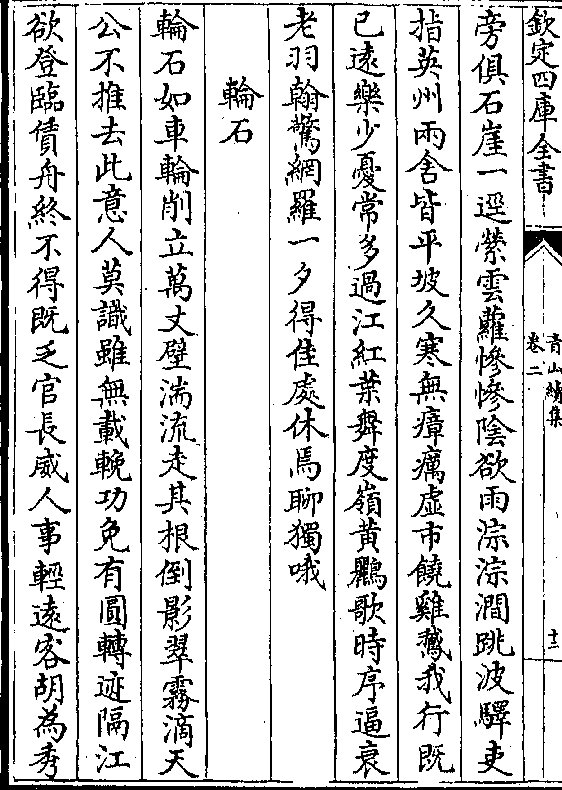 欽定四庫全書
青山續集
卷二
十二
旁俱石崖一逕縈雲蘿慘慘陰欲雨淙淙澗跳波驛吏
指英州兩舍皆平坡久寒無瘴癘虛市饒雞鵞我行既
已遠樂少憂常多過江紅葉舞度嶺黄鸝歌時序逼衰
老羽翰驚網羅一夕得佳處休焉聊獨哦
輪石
輪石如車輪削立萬丈壁湍流走其根倒影翠霧滴天
公不推去此意人莫識雖無載輓功免有圓轉迹隔江
欲登臨賃舟終不得既乏官長威人事輕遠客胡為秀